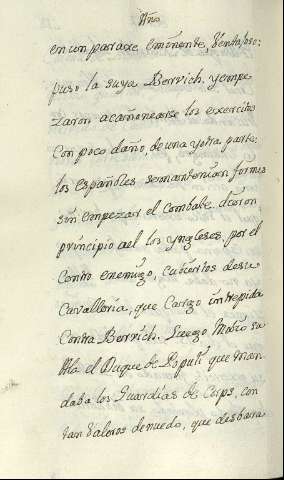 Año
en un paraxe eminente, Ventajoso;
puso la suya Bervich, y empe-
zaron acañonearse los exercitos
Con poco daño, de una y otra parte:
los españoles semantenian formes
sin empezar el combate, dieron
principio ael los yngleses, por el
Contro enemigo, cubiertos desu
Cavalleria, que Cargo intrepida
Contra Bervich. Luego Mobio su
el Duque de Populi que man-
daba los Guardias de Corps, con
tan Valoros denuedo, que desbara